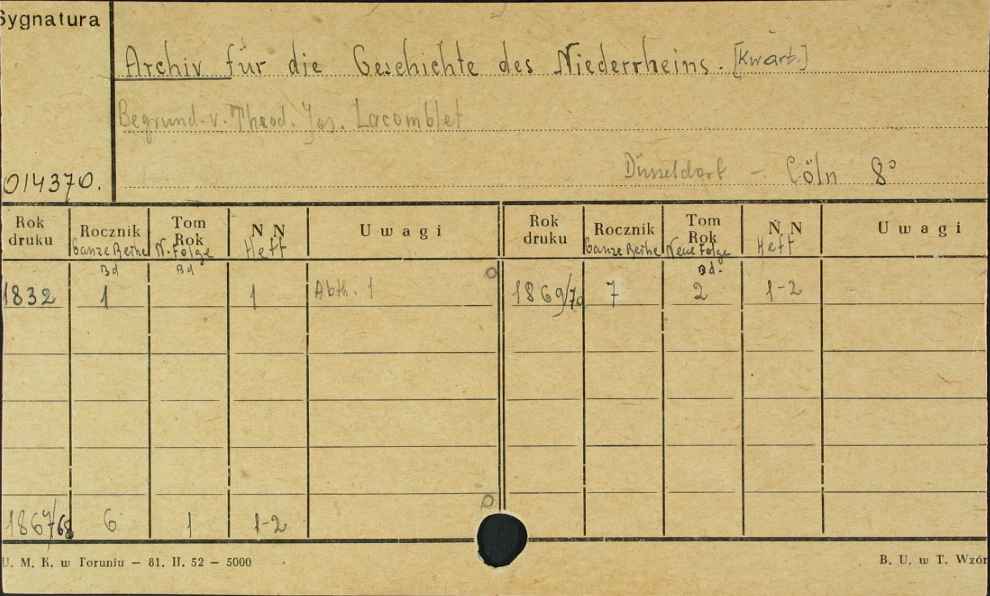 Sygnatura
Archiv für die Geschichte des Niederrheins. [Kwart.]
Begründ. v. Theod. Jos. Lacomblet
014370.
Düsseldorf – Cöln 8°
Rok druku Rocznik Tom Rok N N Uwagi Rok druku Rocznik Tom Rok N N Uwagi
Ganze Reihe N. Folge Heft Ganze Reihe Neue Folge Heft
Bd Bd Bd.
1832 1 1 Abth. 1 1869/70 7 2 1-2
1867/68 6 1 1-2
U. M. K. w Toruniu — 81. II. 52 — 5000
B. U. w T. Wzór